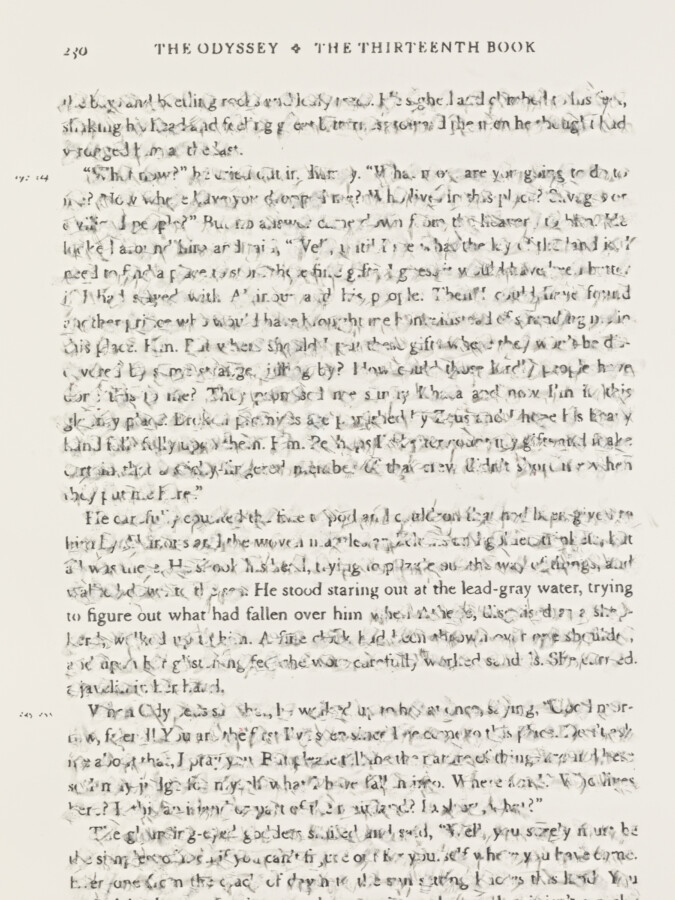 230 THE ODYSSEY ❖ THE THIRTEENTH BOOK
the bay and beetling rocks and leafy trees. He sighed and climbed to his feet,
shaking his head and feeling great bitterness toward the men he thought had
wronged him at the last.
"What now?" he cried out in dismay. "What more are you going to do to
me? Now where have you dropped me? Who lives in this place? Savages or
civilized people?" But no answer came down from the heavens to him. He
looked around him and said, "Well, until I see what the lay of the land is, I
need to find a place to store these fine gifts. I guess it would have been better
if I had stayed with Alcinous and his people. Then I could have found
another prince who would have brought me home instead of stranding me in
this place. Hm. But where should I put these gifts where they won't be dis-
covered by some stranger idling by? How could those lordly people have
done this to me? They promised me sunny Ithaca and now I'm in this
gloomy place. Broken promises are punished by Zeus and I hope his heavy
hand falls fully upon them. Hm. Perhaps I'd better count my gifts and make
certain that a sticky-fingered member of that crew didn't short me when
they put me here."
He carefully counted the fine tripod and cauldron that had been given to
him by Alcinous and the woven and golden but
all was there. He shook his head, trying to puzzle out the way of things, and
walked down to the sea. He stood staring out at the lead-gray water, trying
to figure out what had fallen over him when Athene, disguised as a shep-
herd, walked up to him. A fine cloak had been thrown over one shoulder,
and upon her glistening feet she wore carefully worked sandals. She carried
a javelin in her hand.
When Odysseus saw her, he walked up to her at once, saying, "Good mor-
row, friend! You are the first I've seen since I've come to this place. Don't ask
me about that, I pray you. But please tell me the nature of things around here
so I may judge for myself what I have fallen into. Where am I? Who lives
here? Is this an island or part of the mainland? what?"
The glancing-eyed goddess smiled and said, "Well, you surely must be
the simplest of if you can't figure out for yourself where you have come.
Everyone from the crack of day to the sun setting knows this land. You